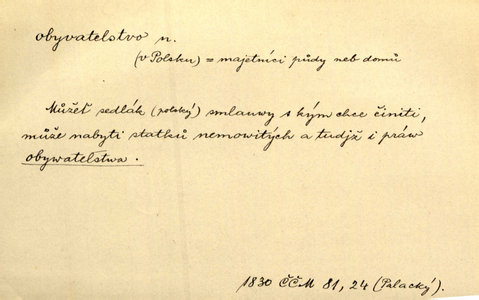 obyvatelstvo n.
(v Polsku) = majetníci půdy neb domů
Můžeť sedlák (polský) smlauwy s kým chce činiti,
může nabyti statků nemowitých a tudjž i práw
obywatelstwa.
1830 ČČM 81, 24 (Palacký).